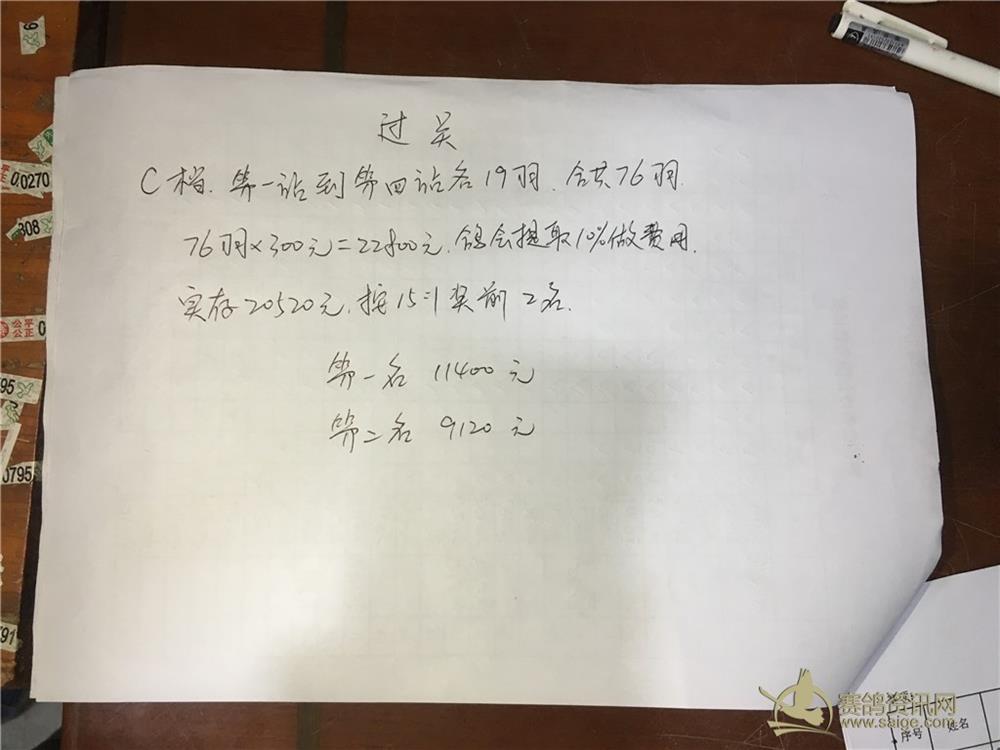 过关
C档.第一站到第四站各19羽.合共76羽.
76羽×300元=22800元.鸽会提取10%做费用.
实存20520元.按15:1奖前2名.
第一名 11400元
第二名 9120元
0.0270
308
公平
公正
95
0795
91
序号
姓名
赛鸽资讯网
www.saige.com